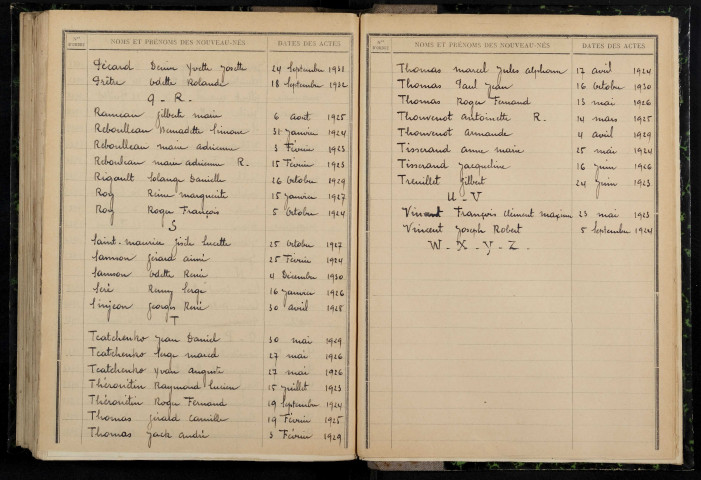 Nos D'ORDRE NOMS ET PRÉNOMS DES NOUVEAU-NÉS DATES DES ACTES
Pécard Denise Yvette Josette 24 Septembre 1933
Prêtre Odette Rolande 18 Septembre 1932
Q - R.
Rameau Gilberte marie 6 août 1925
Reboulleau Bernadette Simone 31 Janvier 1924
Reboulleau marie adrienne 3 Février 1923
Rebouleau marie adrienne R. 15 Février 1923
Rigault Solange Danielle 26 Octobre 1929
Roy Reine marguerite 15 Janvier 1927
Roy Roger François 5 Octobre 1924
S
Saint-maurice Gisèle Lucette 25 Octobre 1927
Samson Gérard aimé 25 Février 1924
Samson Odette Renée 4 Décembre 1930
Seré Remy Serge 16 Janvier 1926
Georges René 30 avril 1925
T
Tcatchenko Jean Daniel 30 mai 1929
Tcatchenko Serge marcel 27 mai 1926
Tcatchenko Yvan auguste 27 mai 1926
Raymond Lucien 15 Juillet 1923
Roger Fernand 19 Septembre 1924
Thomas Gérard Camille 19 Février 1925
Thomas Jack andré 3 Février 1929
Nos D'ORDRE NOMS ET PRÉNOMS DES NOUVEAU-NÉS DATES DES ACTES
Thomas marcel Jules alphonse 17 avril 1924
Thomas Paul Jean 16 Octobre 1930
Thomas Roger Fernand 13 mai 1926
Thouvenot Antoinette R. 14 mars 1925
Thouvenot Armande 4 avril 1929
Tisserand anne marie 25 mai 1924
Tisserand Jacqueline 16 Juin 1926
Treuillet Gilbert 24 Juin 1923
U - V
Vincent François Clément maxime 23 mai 1923
Vincent Joseph Robert 5 Septembre 1924
W - X - Y - Z -